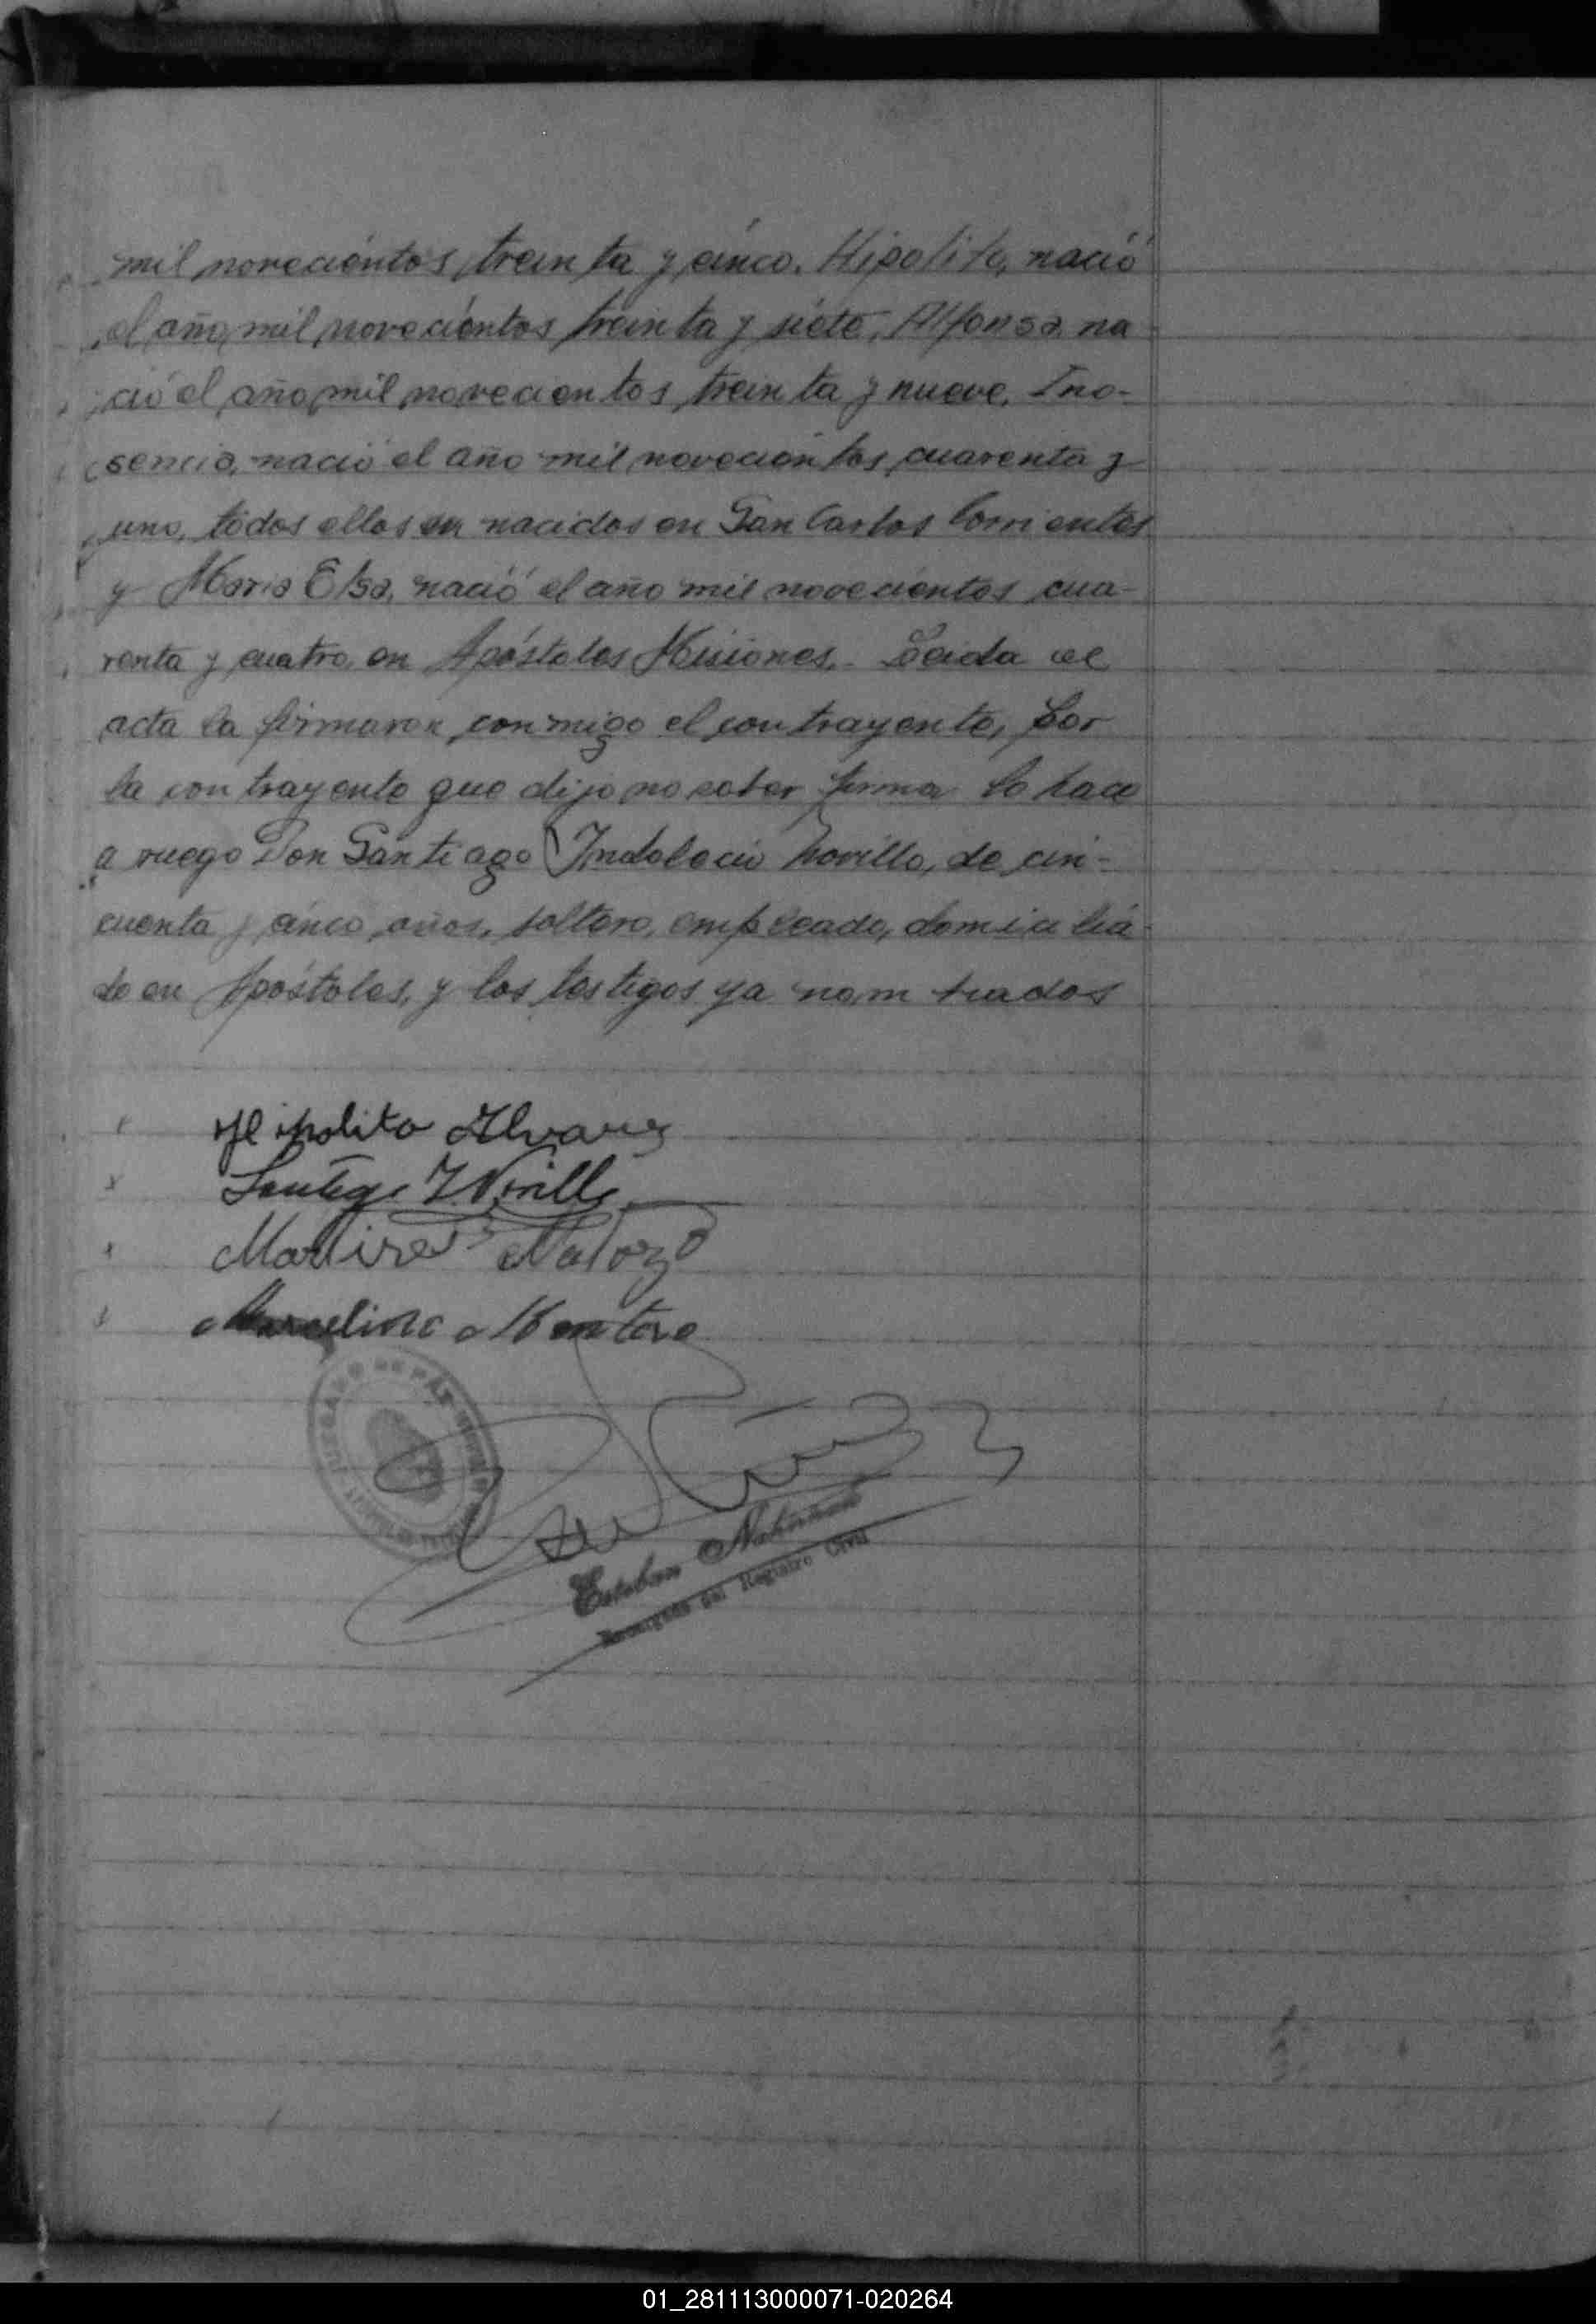 mil novecientos treinta y cinco. Hipolito, nació
el año mil novecientos treinta y siete, Alfonsa na
ció el año mil novecientos treinta y nueve. Ino-
sencia, nació el año mil novecientos cuarenta y
uno, todos ellos en nacidos en San Carlos Corrientes
y Maria Elsa, nació el año mil novecientos cua-
renta y cuatro en Apóstoles Misiones. Leida el
acta la firmaron conmigo el contrayente, por
la contrayente que dijo no saber firmar lo hace
a ruego Don Santiago Indalecio
de cin-
cuenta y cinco años, soltero, empleado, domicilia-
do en Apóstoles, y los testigos ya nombrados
Hipolito Alvarez
Santiago
Marcelino
JUZGADO DE PAZ
Esteban
Encargado del Registro Civil
01_281113000071-020264